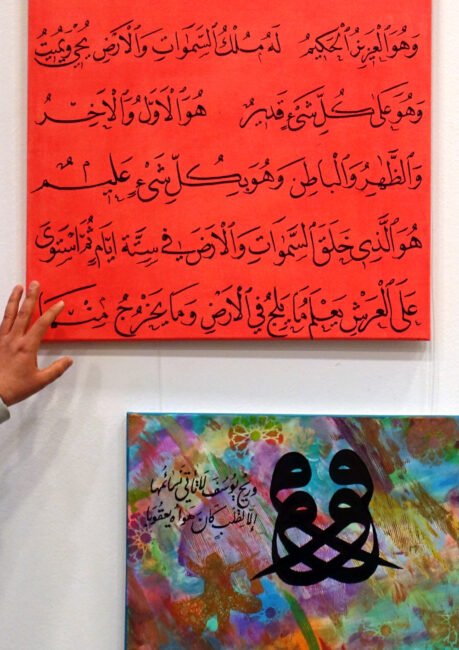 وَهُوَ ٱلْعَزِيزُ ٱلْحَكِيمُ لَهُ مُلْكُ ٱلسَّمٰوَاتِ وَٱلْأَرْضِ يُحْيِي وَيُمِيتُ
وَهُوَ عَلَىٰ كُلِّ شَيْءٍ قَدِيرٌ هُوَ ٱلْأَوَّلُ وَٱلْآخِرُ
وَٱلظَّٰهِرُ وَٱلْبَاطِنُ وَهُوَ بِكُلِّ شَيْءٍ عَلِيمٌ
هُوَ ٱلَّذِي خَلَقَ ٱلسَّمٰوَاتِ وَٱلْأَرْضَ فِي سِتَّةِ أَيَّامٍ ثُمَّ ٱسْتَوَىٰ
عَلَى ٱلْعَرْشِ يَعْلَمُ مَا يَلِجُ فِي ٱلْأَرْضِ وَمَا يَخْرُجُ مِنْهَا
وريح يوسف لا تأتي نسائمها
إلا لقلب كان هواه يعقوبا